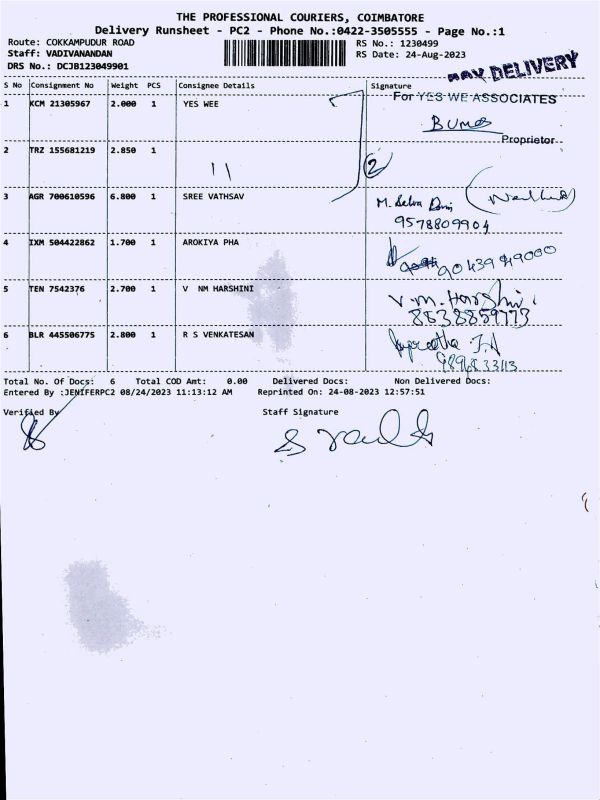 THE PROFESSIONAL COURIERS, COIMBATORE
Delivery Runsheet - PC2 - Phone No.:0422-3505555 - Page No.:1
Route: COKKAMPUDUR ROAD RS No.: 1230499
Staff: VADIVANANDAN RS Date: 24-Aug-2023
DRS No.: DCJB123049901
DELIVERY
S No Consignment No Weight PCS Consignee Details Signature
For YES WE ASSOCIATES
1 KCM 21305967 2.000 1 YES WEE
Proprietor
2 TRZ 155681219 2.850 1 11
2
3 AGR 700610596 6.800 1 SREE VATHSAV M. Selva
9578809904
4 IXM 504422862 1.700 1 AROKIYA PHA
9043949000
5 TEN 7542376 2.700 1 V NM HARSHINI V.M. Harshini
8838859773
6 BLR 445506775 2.800 1 R S VENKATESAN
Total No. Of Docs: 6 Total COD Amt: 0.00 Delivered Docs: Non Delivered Docs:
Entered By :JENIFERPC2 08/24/2023 11:13:12 AM Reprinted On: 24-08-2023 12:57:51
Verified By Staff Signature